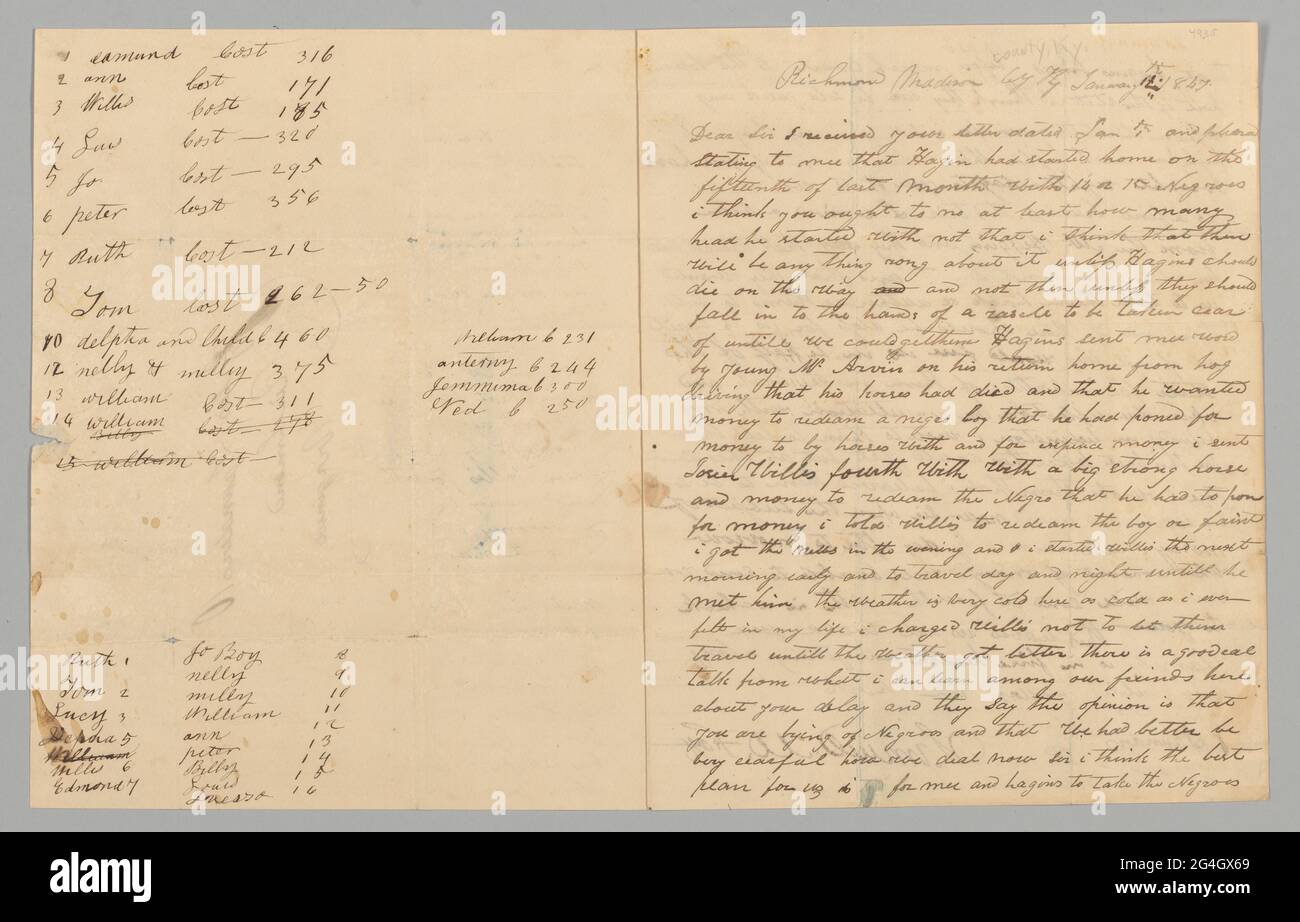 1 edmund Cost 316
2 ann Cost 171
3 Willis Cost 185
4 Luu Cost — 320
5 Jo. Cost — 295
6 peter Cost 356
7 Ruth Cost — 212
8 Tom Cost 262—50
10 delpha and Child C 460
12 nelly & milley 375
13 william Cost — 311
14 william
Billy Cost — 178
15 william Cost —
William C 231
anterny C 244
Jemmima C 300
Ned C 250
Ruth 1
Tom 2
Lucy 3
Delpha 5
William
Willis 6
Edmond 7
Jo Boy 8
nelly 9
milley 10
William 11
ann 12
peter 13
Billy 14
15
16
4935
county Ky
Richmond Madison Cty Ky January 1847
Dear Sir I received your letter dated Jan 1st and
stating to mee that Hagin had started home on the
fifteenth of last month with 14 or 15 Negroes
i think you ought to no at least how many
head he started with not that i think that there
will be any thing rong about it unless Hagins should
die on the way and and not then unless they should
fall in to the hands of a rascle to be taken cear
of untill we could get them Hagins sent mee word
by young Mr Arvin on his return home from hog
driving that his horses had died and that he wanted
money to redeam a negro boy that he had poned for
money to by horses with and for expence money i sent
Willis fourth with with a big strong horse
and money to redeam the Negro that he had to pon
for money i told Willis to redeam the boy or
i got the news in the evening and i started Willis the next
mourning early and to travel day and night untill he
met him the weather is very cold here as cold as i ever
felt in my life i charged Willis not to let them
travel untill the weather got better there is a good eal
talk from what i can learn among our frinds here
about your delay and they say the opinion is that
you are bying of Negroes and that we had better be
very cearful how we deal now Sir i think the best
plan for us is for mee and hagins to take the Negroes
alamy
Image ID: 2G4GX69
www.alamy.com